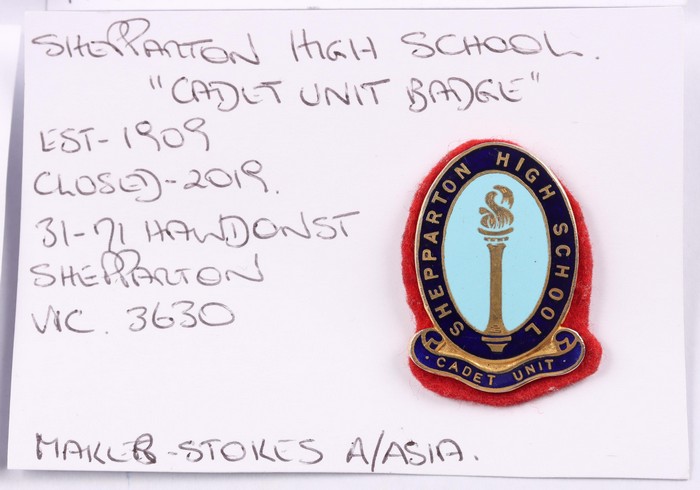 SHEPPARTON HIGH SCHOOL.
"CADET UNIT BADGE"
EST-1909
CLOSED-2019.
31-71 HAWDON ST
SHEPPARTON
VIC. 3630
MAKER-STOKES A/ASIA.
SHEPPARTON HIGH SCHOOL
· CADET UNIT ·